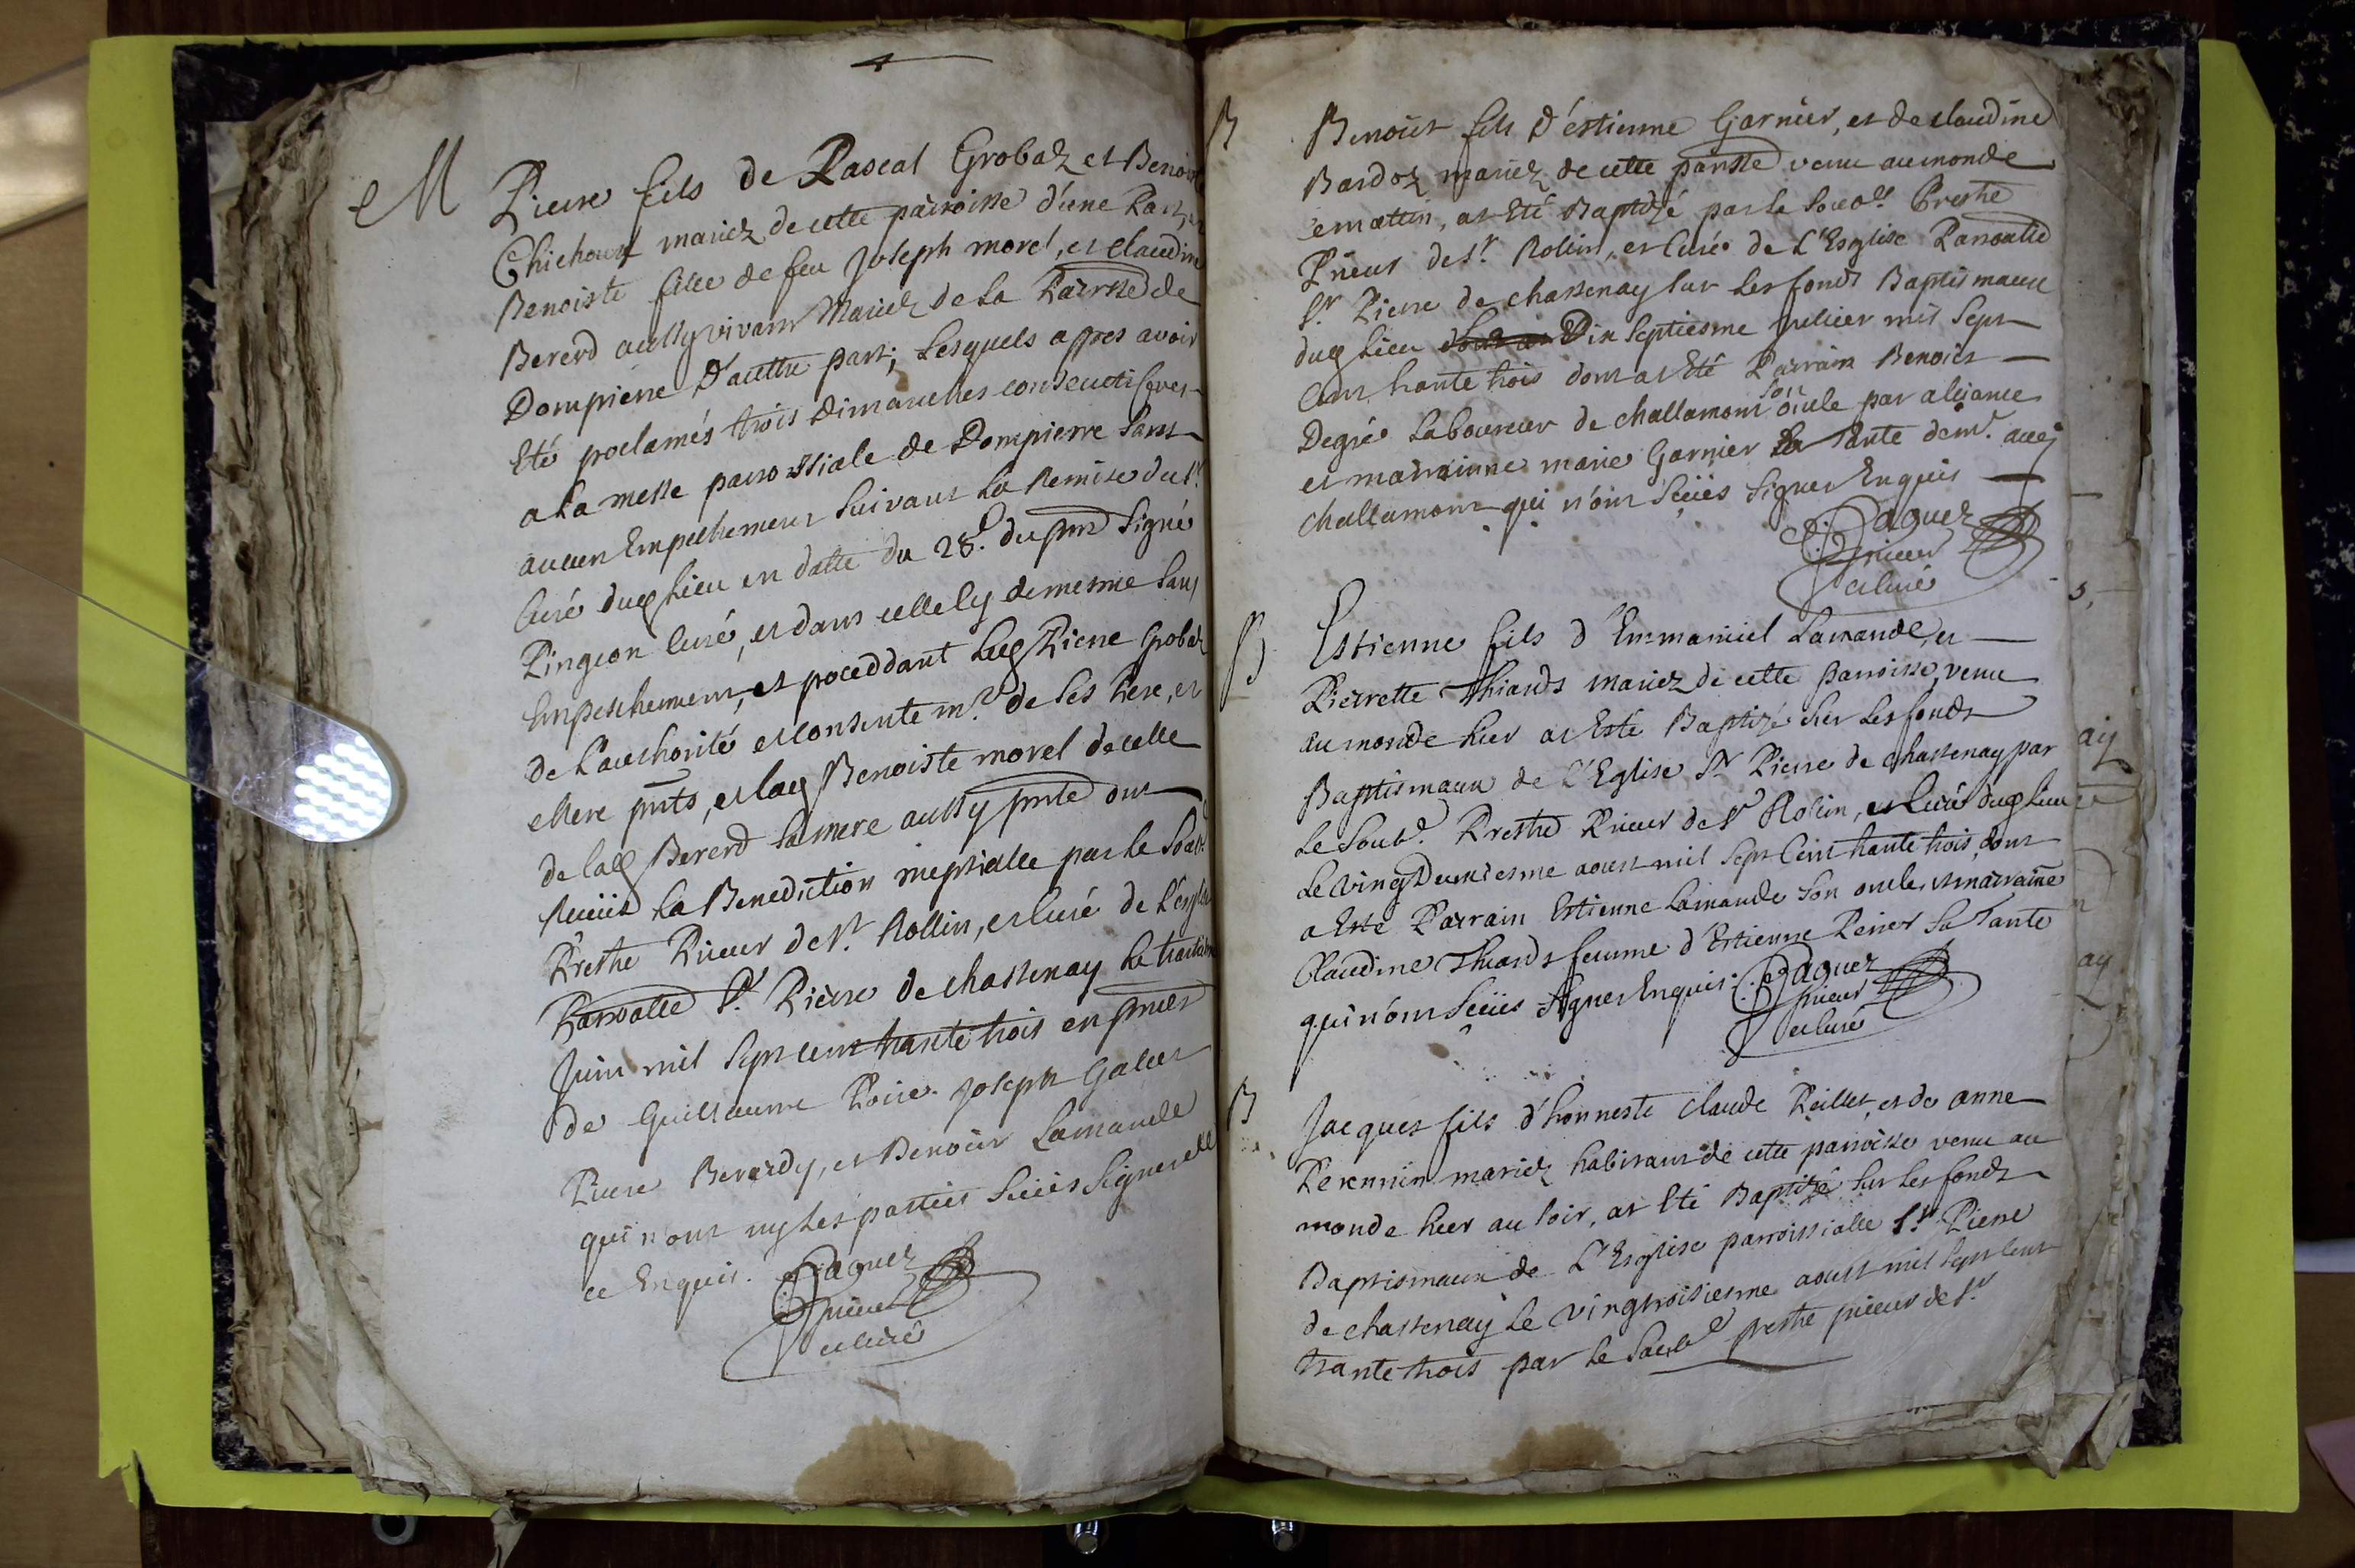 M
Pierre fils de Pascal Grobaz et Benoiste
Chichoux mariez de cette parroisse d'une Part, et
Benoiste fille de feu Joseph morel, et claudine
Bererd aussy vivans Mariez de La Parrsse de
Dompierre D'auttre part, Lesquels appres avoir
Eté poclamés trois dimanches consecutifves
a La messe parrossiale de Dompierre Sans
aucun Empechement Suivant La Remise du Sr
Curé dud Lieu en datte du 28e. du pnt Signé
Pingeon Curé, et dans celle Cy de mesme Sans
Empeschement, et poceddant Led Pierre Grobaz
de L'authorité et Consentemt. de Ses Pere, et
Mere pnts, et Lad Benoiste morel de celle
de lad Bererd Sa mere aussy pnte ont
Receüe La Benediction nuptialle par le Soub.
Prestre Prieur de St. Rollin, et Curé de L'eglise
Parroalle St. Pierre de chastenay Le
Juin mil Sept cent trante trois en pnces
de Guillaume Poire. Joseph Galier
Pierre Berardy, et Benoist Lamande
qui n'ont ny Les parties Sceües Signer
ce Enquis. Paguez
prieur
et curé
B
Benoist fils d'éstienne Garnier, et de claudine
Bardoz mariez de cette parrsse venu au monde
ce mattin, at Eté Baptizé par Le Soub. Prestre
Prieur de St. Rolin, et Curé de L'Esglise Parroalle
St. Pierre de chastenay Sur Les fonds Baptismaux
dud Lieu Dix Septiesme Juliier mil Sept
Cent trante trois dont at Eté Parrain Benoist
Degré Laboureur de challamont son oncle par aliance
et marrainne marie Garnier Sa Tante demt. aud
challamont qui n'ont Sceües Signer Enquis
Paguez
prieur
et curé
B
Estienne fils d'Emmaniiel Lamande, et
Pierrette Thiards mariez de cette parroisse, venu
au monde hier at Esté Baptizé Sur Les fonds
Baptismaux de L'Eglise St Pierre de chastenay par
Le Soub. Prestre Prieur de St Rolin, et Curé dud Lieu
Le vingt Deuxiesme aoust mil Sept Cent trante trois, dont
a Esté Parrain Estienne Lamande Son oncle, et marraine
Claudine Thiards femme d'Estienne Perier Sa Tante
qui n'ont Sceües Signer Enquis. Paguez
prieur
et curé
B
Jacques fils d'honneste claude Peillet, et de anne
Perennin mariez habitans de cette parroisse venu au
monde hier au soir, at Eté Baptizé Sur Les fonds
Baptismaux de L'Esglise parroissialle St Pierre
de chastenay Le vingtroisiesme aoust mil Sept Cent
trante trois par Le Soub. prestre prieur de St